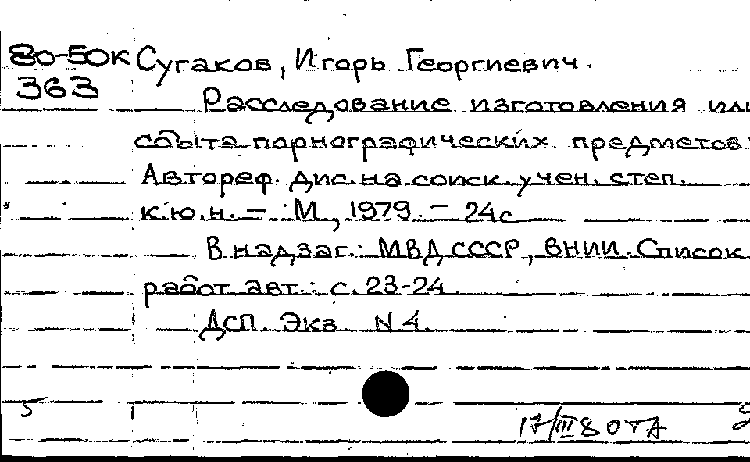 80-50К Сугаков, Игорь Георгиевич.
363
Расследование изготовления или
сбыта порнографических предметов:
Автореф. дис. на соиск. учен. степ.
к.ю.н. – М., 1979. – 24с
В надзаг.: МВД СССР, ВНИИ. Список
работ авт.: с. 23-24.
ДСП. Экз. N 4.
5
17/III 80